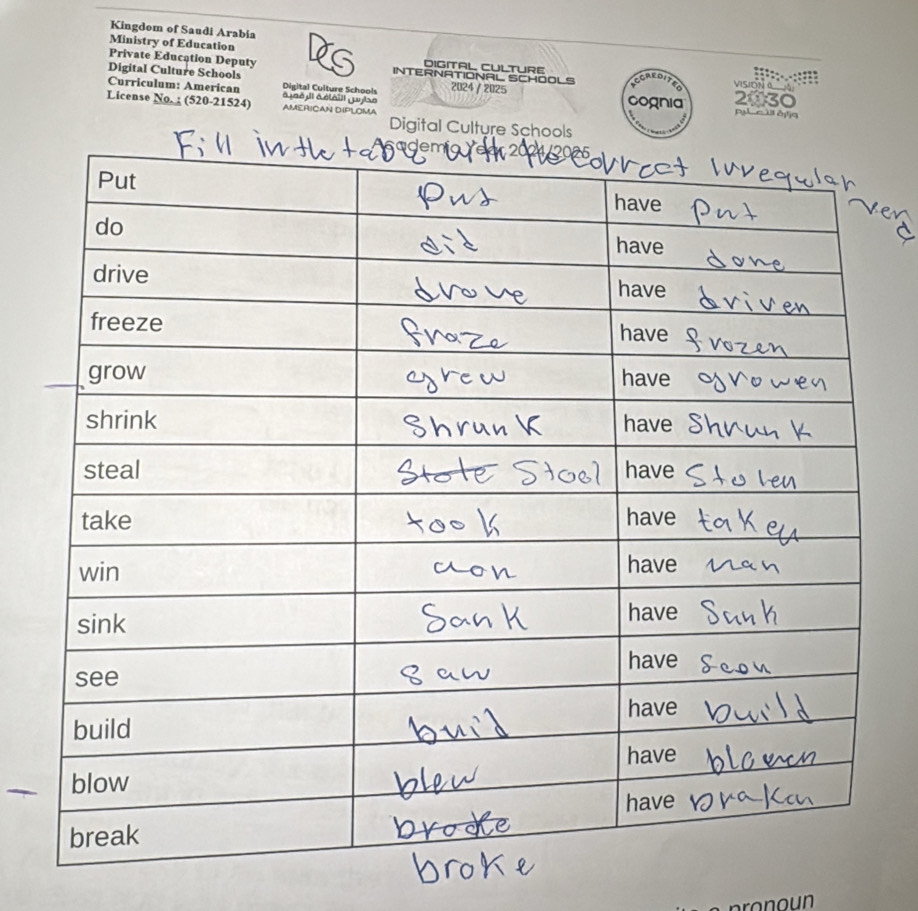 Kingdom of Saudi Arabia
Ministry of Education
Private Education Deputy
Digital Culture Schools
Curriculum: American
License No. : (520-21524)
DCS
Digital Culture Schools
مدارس الثقافة الرقمية
AMERICAN DIPLOMA
DIGITAL CULTURE
INTERNATIONAL SCHOOLS
2024 / 2025
ACCREDITED
cognia
VISION رؤية
2030
Digital Culture Schools
Academic Year 2024/2025
Fill in the table with the correct irregular verb
Put put have put
do did have done
drive drove have driven
freeze fraze have frozen
grow grew have growen
shrink shrunk have shrunk
steal stote stool have stolen
take took have taken
win won have
sink sank have sunk
see saw have seen
build buid have build
blow blew have blowen
break broke have braken
broke
pronoun